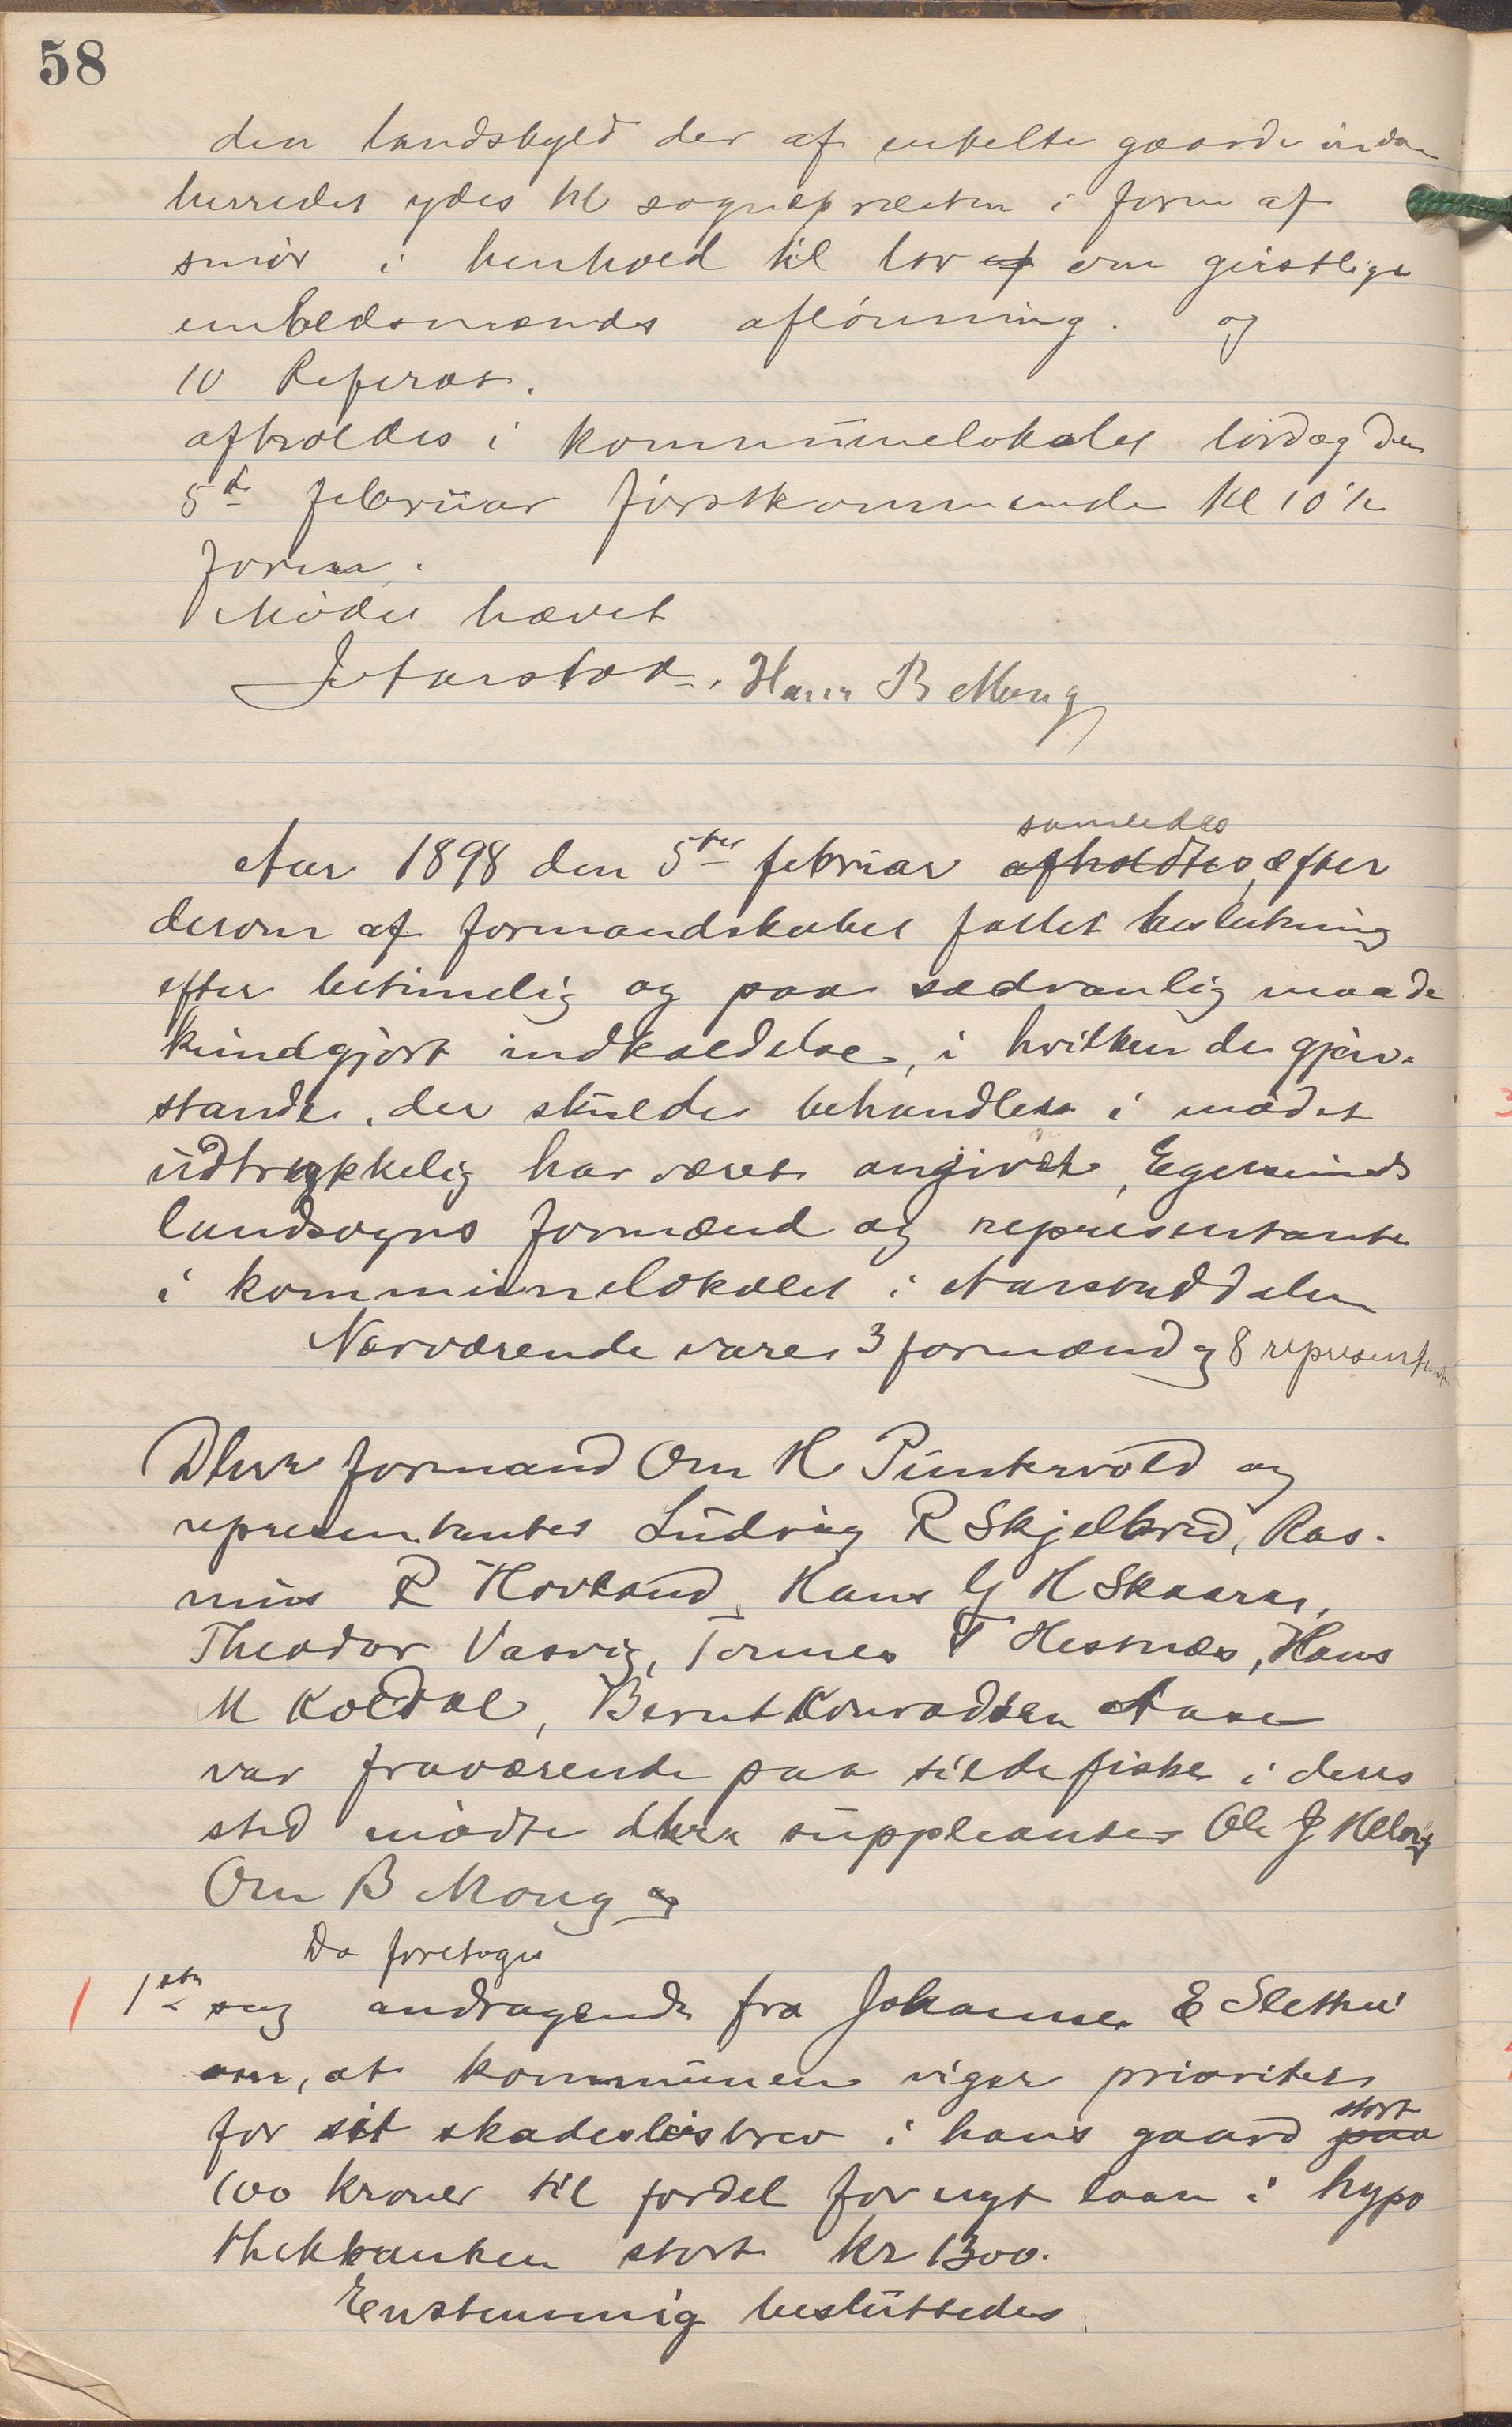 58
den landskyld der af enkelte gaarde inden
herredet ydes til sognepræsten i form af
smør i henhold til lov af om geistlige
embedsmænds aflønning. og
10 Referat.
afholdes i kommunelokalet lørdag den
5de februar førstkommende kl 10 1/2
form.
Mødet hævet
J Aarstad. Hans B Mong
samledes
Aar 1898 den 5te februar afholdtes, efter
derom af formandskabet fattet beslutning
efter betimelig og paa sædvanlig maade
kundgjort indkaldelse, i hvilken de gjen-
stande, der skulde behandles i mødet
udtrykkelig har været angivet, Egersunds
landsogns formænd og representanter
i kommunelokalet i Aarstaddalen
Nærværende vare 3 formænd og 8 representanter
Dhrr formand Om H Puntervold og
representanter Ludvig R Skjelbred, Ras-
mus R Hovland, Hans G H Skaara,
Theodor Vasvig, Tønnes T Hestnæs, Hans
M Koldal, Bernt Konradsen Aase
var fraværende paa sildefiske i deres
sted mødte dhrr suppleanter Ole J
Om B Mong og
Da foretoges
1 1ste sag andragende fra Johannes E Slettebø
om, at kommunen viger prioritet
for sit skadesløsbrev i hans gaard paa stort
100 kroner til fordel for nyt laan i hypo
thekbanken stort kr 1300.
Enstemmig besluttedes